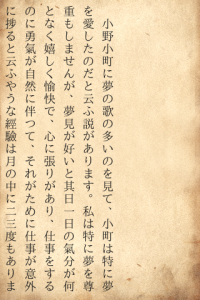 小野小町に夢の歌の多いのを見て、小町は特に夢
を愛したのだと云ふ説があります。私は特に夢を尊
重もしませんが、夢見が好いと其日一日の氣分が何
となく嬉しく愉快で、心に張りがあり、仕事をする
のに勇氣が自然に伴つて、それがために仕事が意外
に捗ると云ふやうな經驗は月の中に二三度もありま